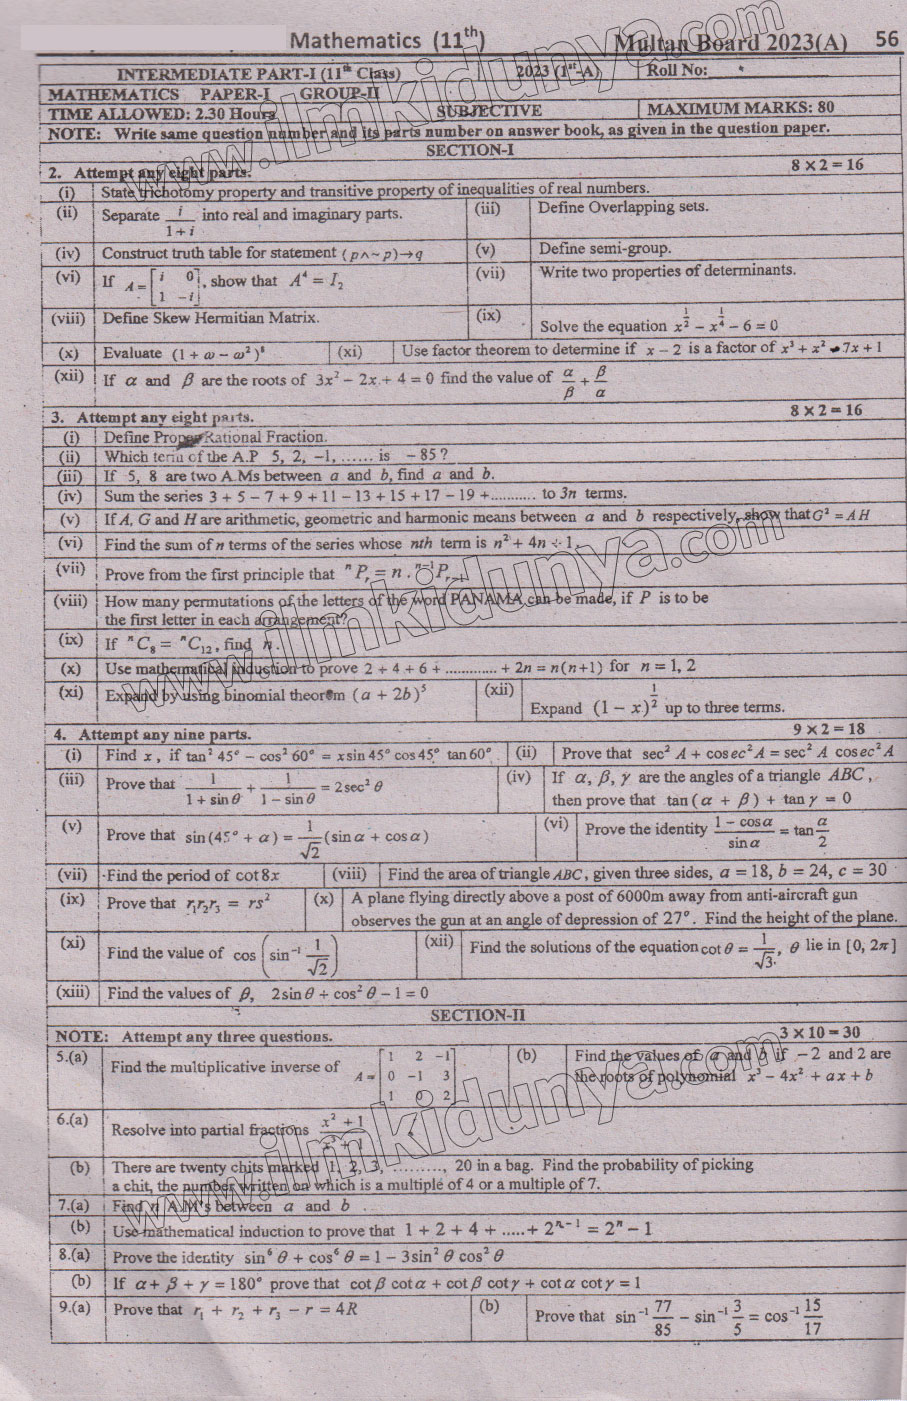 Mathematics (11th) Multan Board 2023(A) 56
INTERMEDIATE PART-I (11th Class) 2023 (1st-A) Roll No:
MATHEMATICS PAPER-I GROUP-II
TIME ALLOWED: 2.30 Hours SUBJECTIVE MAXIMUM MARKS: 80
NOTE: Write same question number and its parts number on answer book, as given in the question paper.
SECTION-I
2. Attempt any eight parts. 8 × 2 = 16
(i) State trichotomy property and transitive property of inequalities of real numbers.
(ii) Separate i/(1+i) into real and imaginary parts. (iii) Define Overlapping sets.
(iv) Construct truth table for statement (p∧~p)→q (v) Define semi-group.
(vi) If A = [i 0; 1 −i], show that A⁴ = I₂ (vii) Write two properties of determinants.
(viii) Define Skew Hermitian Matrix. (ix) Solve the equation x^(1/2) − x^(1/4) − 6 = 0
(x) Evaluate (1 + ω − ω²)⁸ (xi) Use factor theorem to determine if x − 2 is a factor of x³ + x² − 7x + 1
(xii) If α and β are the roots of 3x² − 2x + 4 = 0 find the value of α/β + β/α
3. Attempt any eight parts. 8 × 2 = 16
(i) Define Proper Rational Fraction.
(ii) Which term of the A.P 5, 2, −1, ...... is −85?
(iii) If 5, 8 are two A.Ms between a and b, find a and b.
(iv) Sum the series 3 + 5 − 7 + 9 + 11 − 13 + 15 + 17 − 19 + ........... to 3n terms.
(v) If A, G and H are arithmetic, geometric and harmonic means between a and b respectively, show that G² = AH
(vi) Find the sum of n terms of the series whose nth term is n² + 4n + 1.
(vii) Prove from the first principle that ⁿPᵣ = n . ⁿ⁻¹Pᵣ₋₁
(viii) How many permutations of the letters of the word PANAMA can be made, if P is to be
the first letter in each arrangement?
(ix) If ⁿC₈ = ⁿC₁₂, find n.
(x) Use mathematical induction to prove 2 + 4 + 6 + ............. + 2n = n(n+1) for n = 1, 2
(xi) Expand by using binomial theorem (a + 2b)⁵ (xii) Expand (1 − x)^(1/2) up to three terms.
4. Attempt any nine parts. 9 × 2 = 18
(i) Find x, if tan² 45° − cos² 60° = x sin 45° cos 45° tan 60° (ii) Prove that sec² A + cosec² A = sec² A cosec² A
(iii) Prove that 1/(1 + sin θ) + 1/(1 − sin θ) = 2 sec² θ (iv) If α, β, γ are the angles of a triangle ABC,
then prove that tan (α + β) + tan γ = 0
(v) Prove that sin (45° + α) = 1/√2 (sin α + cos α) (vi) Prove the identity (1 − cos α)/sin α = tan α/2
(vii) Find the period of cot 8x (viii) Find the area of triangle ABC, given three sides, a = 18, b = 24, c = 30
(ix) Prove that r₁r₂r₃ = rs² (x) A plane flying directly above a post of 6000m away from anti-aircraft gun
observes the gun at an angle of depression of 27°. Find the height of the plane.
(xi) Find the value of cos (sin⁻¹ 1/√2) (xii) Find the solutions of the equation cot θ = 1/√3, θ lie in [0, 2π]
(xiii) Find the values of θ, 2 sin θ + cos² θ − 1 = 0
SECTION-II
NOTE: Attempt any three questions. 3 × 10 = 30
5.(a) Find the multiplicative inverse of A = [1 2 −1; 0 −1 3; 1 0 2] (b) Find the values of a and b if −2 and 2 are
the roots of polynomial x³ − 4x² + ax + b
6.(a) Resolve into partial fractions (x² + 1)/(x³ + 1)
(b) There are twenty chits marked 1, 2, 3, .........., 20 in a bag. Find the probability of picking
a chit, the number written on which is a multiple of 4 or a multiple of 7.
7.(a) Find n A.M's between a and b.
(b) Use mathematical induction to prove that 1 + 2 + 4 + ..... + 2ⁿ⁻¹ = 2ⁿ − 1
8.(a) Prove the identity sin⁶ θ + cos⁶ θ = 1 − 3 sin² θ cos² θ
(b) If α + β + γ = 180° prove that cot β cot α + cot β cot γ + cot α cot γ = 1
9.(a) Prove that r₁ + r₂ + r₃ − r = 4R (b) Prove that sin⁻¹ 77/85 − sin⁻¹ 3/5 = cos⁻¹ 15/17
www.ilmkidunya.com
www.ilmkidunya.com
www.ilmkidunya.com